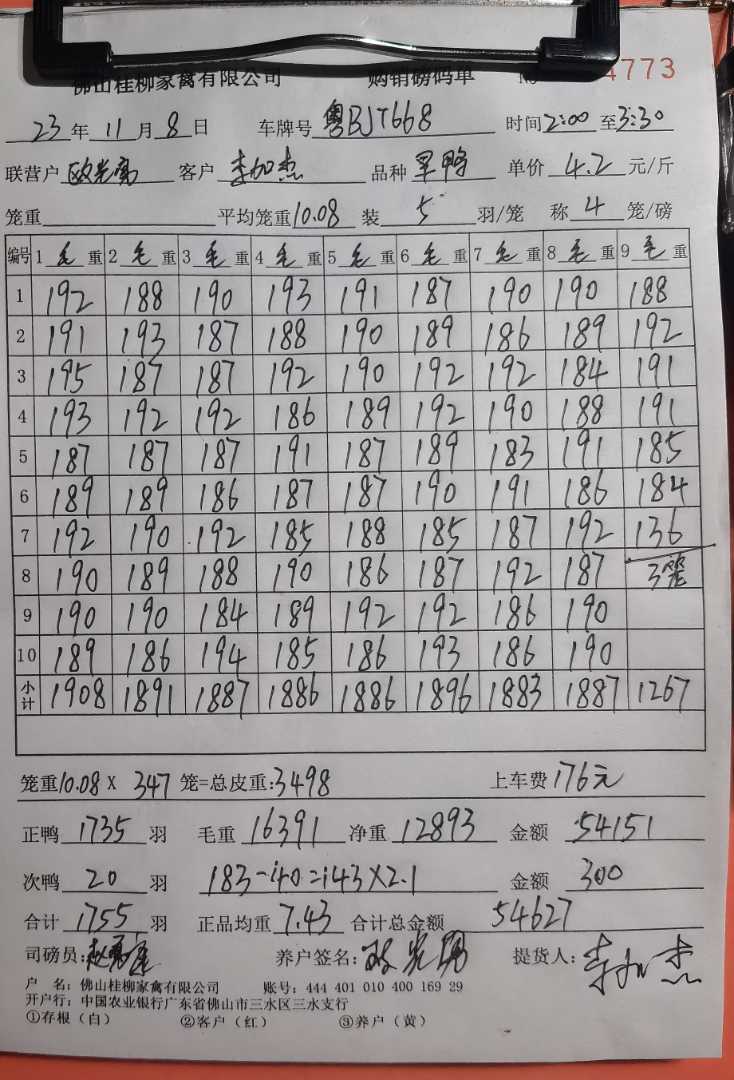 佛山桂柳家禽有限公司 购销磅码单 No 4773
23年11月8日 车牌号 粤BJT668 时间2:00至3:30
联营户 欧光寓 客户 李加杰 品种 旱鸭 单价 4.2 元/斤
笼重 平均笼重10.08 装 5 羽/笼 称 4 笼/磅
编号 1 毛 重 2 毛 重 3 毛 重 4 毛 重 5 毛 重 6 毛 重 7 毛 重 8 毛 重 9 毛 重
1 192 188 190 193 191 187 190 190 188
2 191 193 187 188 190 189 186 189 192
3 195 187 187 192 190 192 192 184 191
4 193 192 192 186 189 192 190 188 191
5 187 187 187 191 187 189 183 191 185
6 189 189 186 187 187 190 191 186 184
7 192 190 192 185 188 185 187 192 136
8 190 189 188 190 186 187 192 187 3笼
9 190 190 184 189 192 192 186 190
10 189 186 194 185 186 193 186 190
小计 1908 1891 1887 1886 1886 1896 1883 1887 1267
笼重10.08 X 347 笼=总皮重:3498 上车费176元
正鸭 1735 羽 毛重 16391 净重 12893 金额 54151
次鸭 20 羽 183-40=143×2.1 金额 300
合计 1755 羽 正品均重 7.43 合计总金额 54627
司磅员: 养户签名: 提货人:李加杰
户 名:佛山桂柳家禽有限公司 账号:444 401 010 400 169 29
开户行:中国农业银行广东省佛山市三水区三水支行
①存根(白) ②客户(红) ③养户(黄)